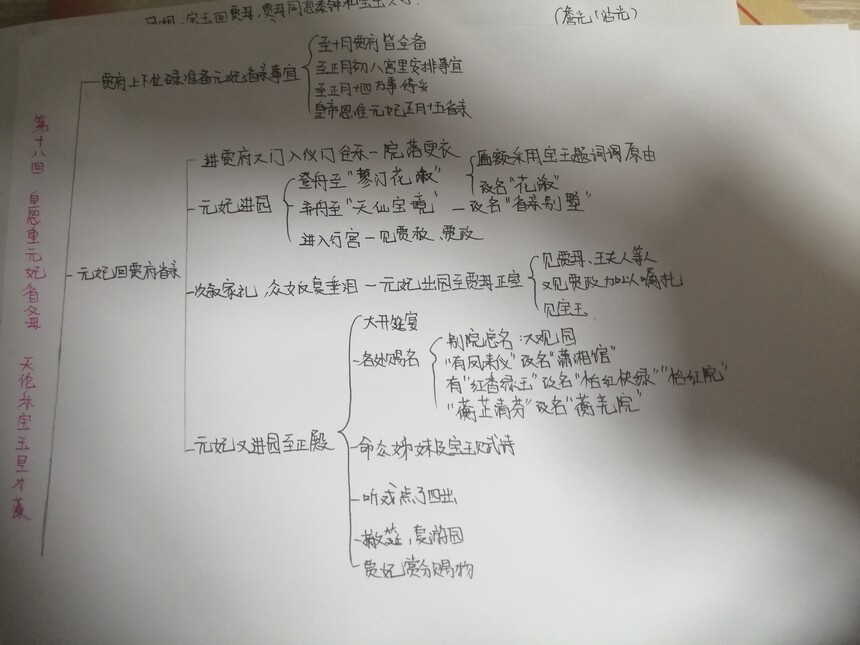 (詹光/沾光)
至十月贾府皆全备
至正月初八宫里安排事宜
贾府上下忙碌准备元妃省亲事宜
至正月十四万事停妥
皇帝恩准元妃正月十五省亲
第十八回 皇恩重元妃省父母 天伦乐宝玉呈才藻
进贾府大门入仪门至东一院落更衣
匾额采用宝玉题词调原由
登舟至"蓼汀花溆"
改名"花溆"
元妃进园
弃舟至"天仙宝境"
改名"省亲别墅"
进入行宫一见贾赦、贾政
元妃回贾府省亲
次叙家礼,众女反复垂泪一元妃出园至贾母正室
见贾母、王夫人等人
又见贾政加以嘱托
见宝玉
大开筵宴
各处赐名
别院总名:大观园
"有凤来仪"改名"潇湘馆"
有"红香绿玉"改名"怡红快绿""怡红院"
"蘅芷清芬"改名"蘅芜院"
元妃又进园至正殿
命众姊妹及宝玉试诗
听戏点了四出
撤筵,复游园
贾妃赏分赐物